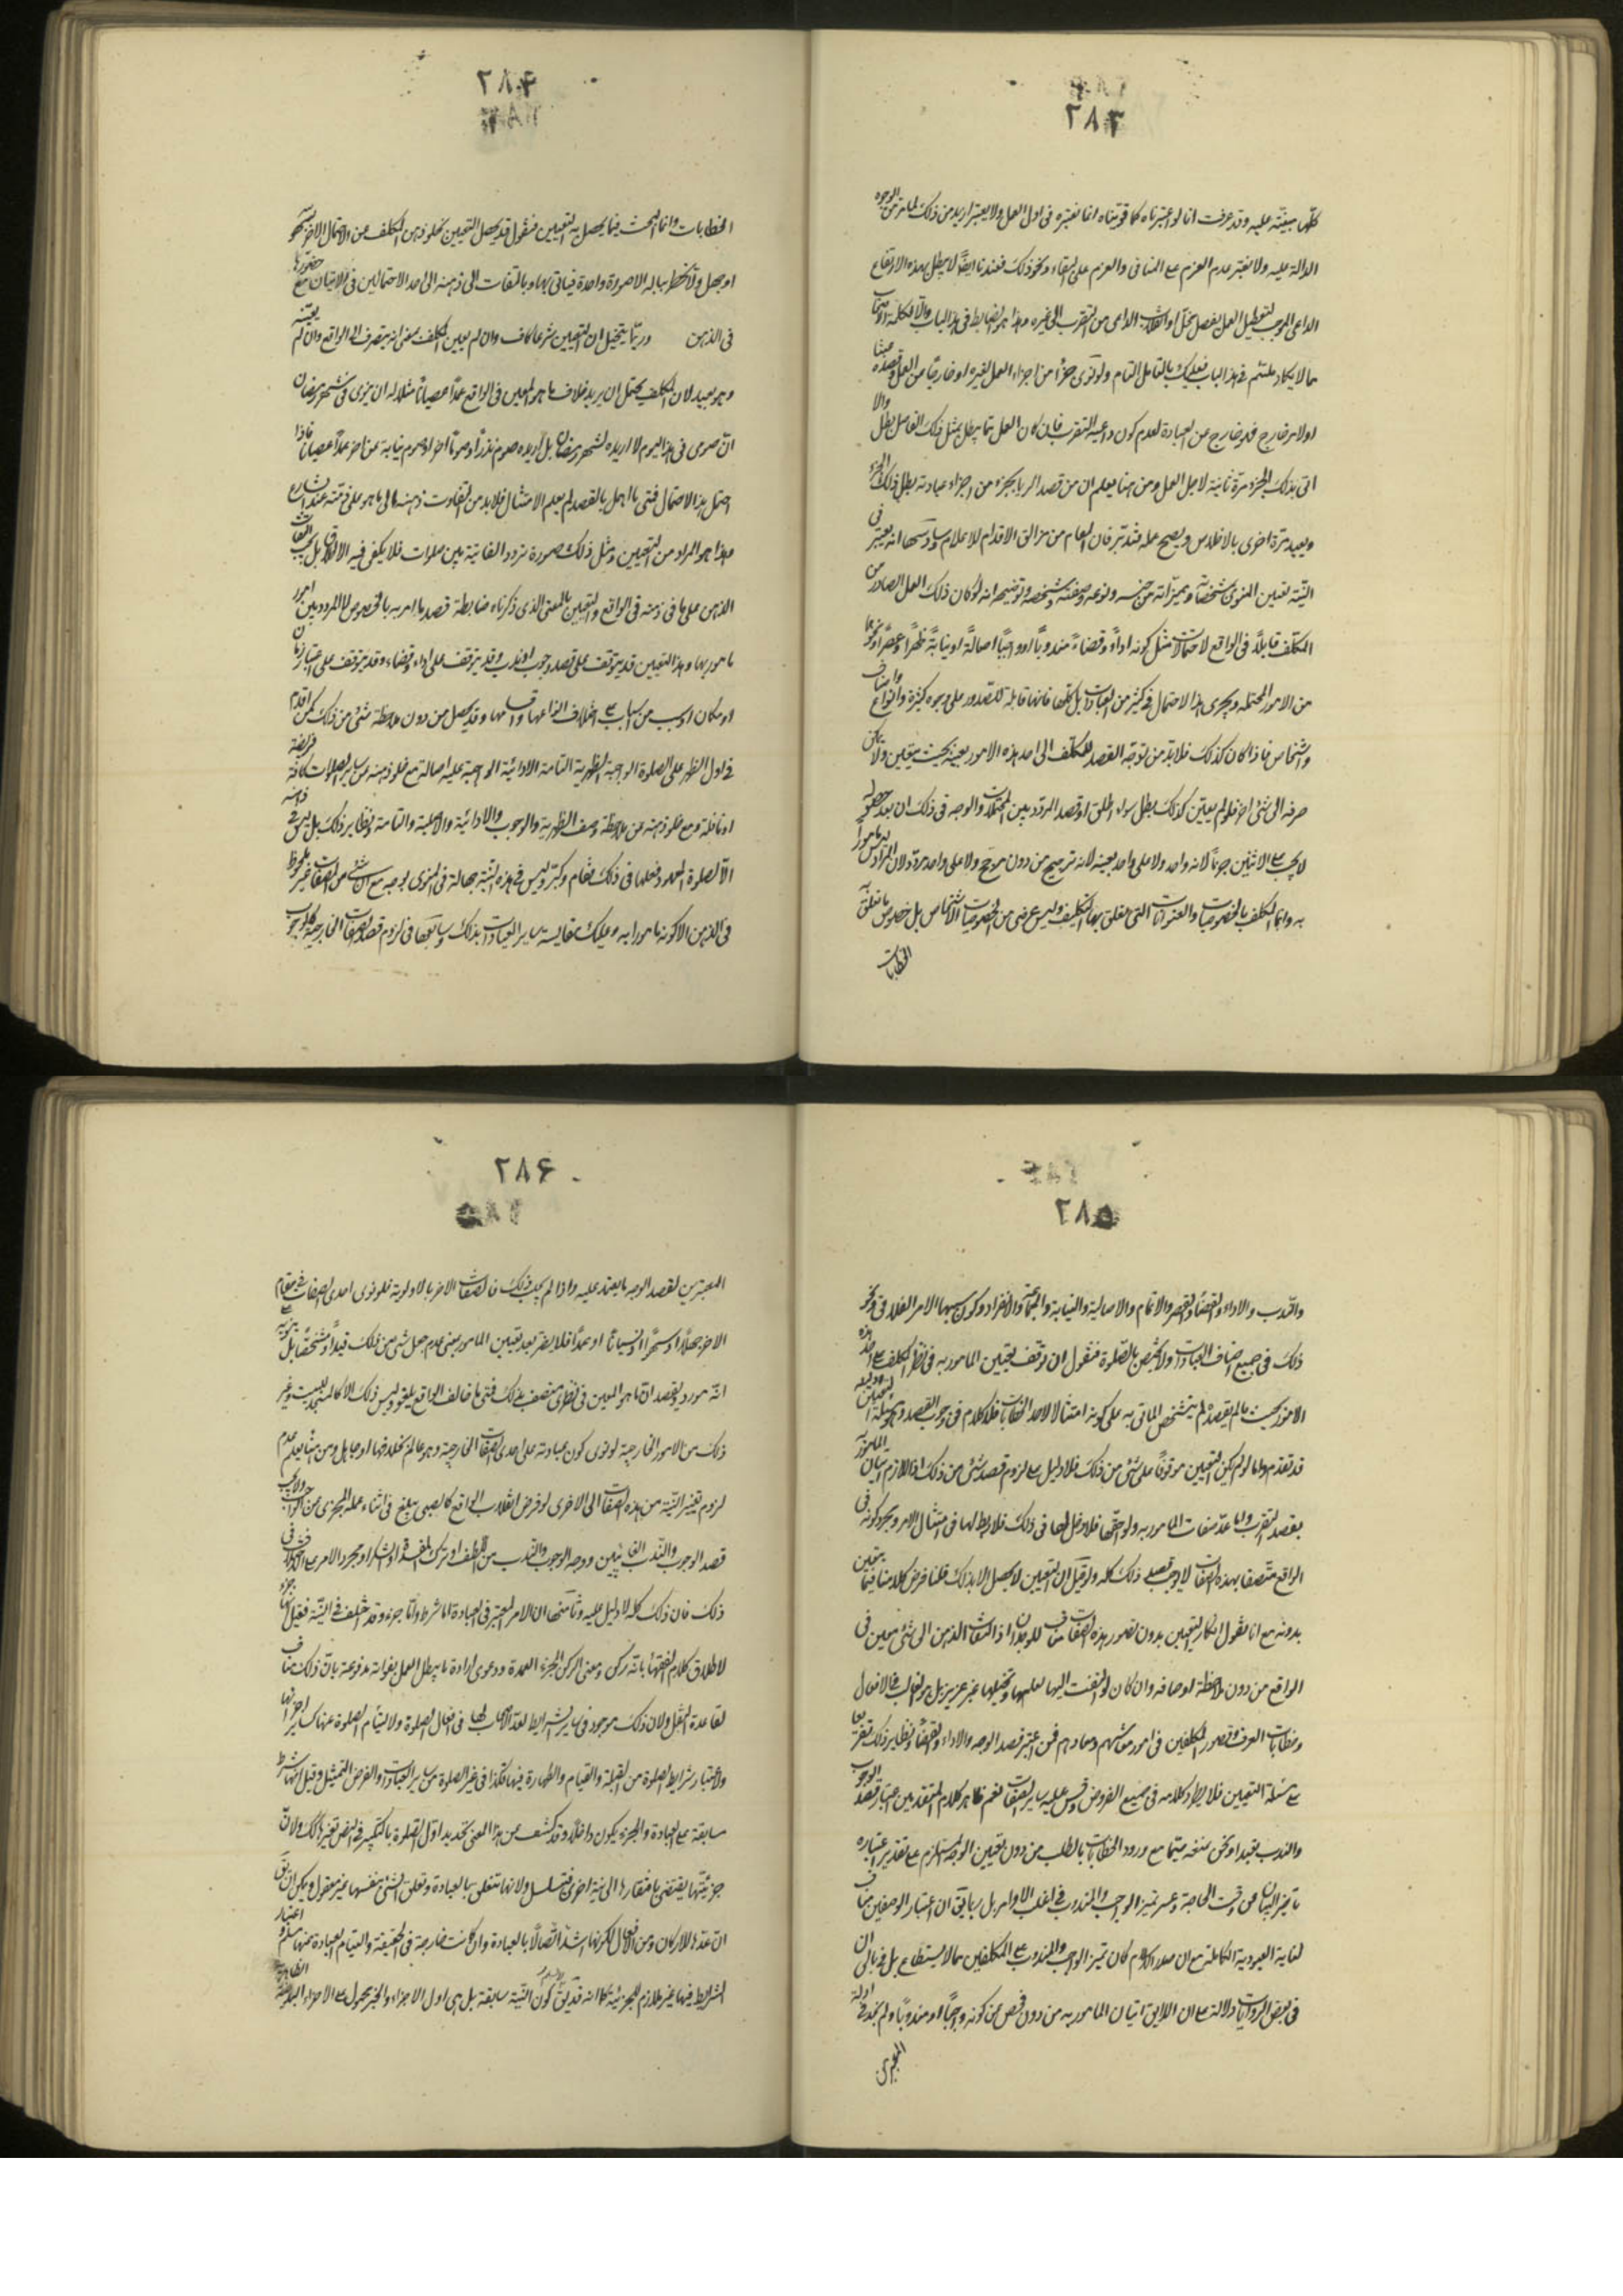 ٢٨٣
كلها مبنية عليه وقد عرفت انا لو اعتبرناه كما قويناه انما نعتبره فى اول العمل ولا يعتبر ازيد من ذلك لما مر من الوجوه
الدالة عليه ولا نعتبر عدم العزم على المنافى والعزم على البقاء ونحو ذلك فعندنا ايضا لا يبطل بهذه الارتفاع
الداعى الموجب لتعطيل العمل بفصل مخل او انقلاب الداعى من التقرب الى غيره وهذا هو الضابط فى هذا الباب والا فكلمة الاصحاب
مما لا يكاد يلتئم فى هذا الباب فعليك بالتامل التام ولو نوى جزءا من اجزاء العمل لغيره او خارجا من العمل وقصده عبثا
اولا مر خارج فهو خارج عن العبادة لعدم كون داعيه التقرب فان كان العمل مما يبطل بمثل ذلك الفاصل بطل والا
اتى بذلك الجزء مرة ثانية لاجل العمل ومن هنا يعلم ان من قصد الريا بجزء من اجزاء عبادته بطل ذلك الجزء
ويعيد مرة اخرى بالاخلاص ويصح عمله فتدبر فان المقام من مزالق الاقدام للاعلام وسادسها انه يعتبر فى
النية تعيين المنوى بمشخصاته ومميزاته من جنسه ونوعه وصفته وشخصه وتوضيحه انه لو كان ذلك العمل الصادر من
المكلف قابلا فى الواقع لاحتمالات مثل كونه اداء وقضاء مندوبا او واجبا اصالة او نيابة ظهرا وعصرا ونحوها
من الامور المحتملة ويجرى هذا الاحتمال فى كثير من العبادات بل كلها فانها قابلة للصدور على وجوه كثيرة وانواع واصناف
واشخاص فاذا كان كذلك فلا بد من توجه القصد للمكلف الى احد هذه الامور بعينه بحيث يتعين ولا يمكن
صرفه الى شئ اخر فلو لم يعين كذلك بطل سواء اطلق او قصد المردد بين المحتملات والوجه فى ذلك ان بعد حصوله
لا يحسب على الاثنين جزما لانه واحد ولا على واحد بعينه لانه ترجيح من دون مرجح ولا على واحد مردد لان المراد ليس مامورا
به وانما التكلف بالخصوصيات والعنوانات التى تعلق بها التكليف وليس غرضى من الخصوصيات الاشخاص بل خصوص ما تعلق به
الخطابات
٢٨۴
الخطابات وانما البحث فيما يحصل به التعيين فنقول قد يحصل التعيين بخلو ذهن المكلف عن الاحتمال الاخر لسهو
او جهل ولا يخطر بباله الا صورة واحدة فياتى بها وبالتفات الى ذهنه الى احد الاحتمالين فى الاتيان مع حضورها
فى الذهن وربما يتخيل ان التعيين شرعا كاف وان لم يعين المكلف بمعنى انه يتصرف الى الواقع وان لم يعينه
وهو بعيد لان المكلف يحتمل ان يريد خلاف ما هو المعين فى الواقع عمدا عصيانا مثلا له ان ينوى فى شهر رمضان
ان صومى فى هذا اليوم لا اريده لشهر رمضان بل اريده صوم نذر او صوما اخر او صوم نيابة عن اخر عمدا عصيانا فاذا
احتمل هذا الاحتمال فمتى ما اهمل بالقصد لم يعلم الامتثال فلا بد من التفاوت ذهنه الى ما هو على ذمته عند الشارع
وهذا هو المراد من التعيين ومثل ذلك صورة تردد الفائتة بين صلوات فلا يكفى فيه الاطلاق بل يجب التفات
الذهن على ما فى ذمته فى الواقع والتعيين بالمعنى الذى ذكرناه ضابطة قصد ما امر به بالخصوص لا المردد بين امور
مامور بها وهذا التعيين قد يتوقف على قصد وجوب او ندب وقد يتوقف على اداء وقضاء وقد يتوقف على اعتبار زمان
او مكان او سبب من اسباب على اختلاف انواعها واقسامها وقد يحصل من دون ملاحظة شئ من ذلك كمن اقدم
فى اول الظهر على الصلوة الواجبة الظهرية التامة الادائية الواجبة عليه اصالة مع خلو ذهنه عن ساير الصلوات كافة فريضة
او نافلة ومع خلو ذهنه عن ملاحظة وصف الظهرية والوجوب والادائية والاصلية والتامة ونظاير ذلك بل ليس فى ذهنه
الا الصلوة المعهود فعلها فى ذلك مقام وكبر وليس فى هذه النية جهالة فى المنوى بوجه مع ان شئ من الصفات غير ملحوظ
فى الذهن الا كونه مامورا به وعليك بمقايسة ساير العبادات بذلك وسابعها فى لزوم قصد الصفات الخارجية كالوجوب
٢٨۵
والندب والاداء والقضاء والقصر والاتمام والاصالية والنيابة والجماعة والانفراد وكون سببها الامر الفلانى ونحو
ذلك فى جميع اصناف العبادات ولا يختص بالصلوة فنقول ان توقف تعيين المامور به فى نظر المكلف على احد هذه
الامور بحيث ما لم يقصده لم يتشخص الماتى به على كونه امتثالا لاحد الخطابات فلا كلام فى وجوب القصد وهو مسئلة التعيين ودليله
قد تقدم واما لو لم يكن التعيين موقوفا على شئ من ذلك فلا دليل على لزوم قصد شئ من ذلك اذ اللازم اتيان المامور به
بقصد التقرب واما عد صفات المامور به ولواحقها فلا دخل لها فى ذلك فلا ربط لها فى امتثال الامر ومجرد كونه فى
الواقع متصفا بهذه الصفات لا يوجب قصد ذلك كله ولو قيل ان التعيين لا يحصل الا بذلك قلنا فرض كلامنا فيما يتعين
بدونه مع انا نقول انكار التعيين بدون تصور هذه الصفات مناف للوجدان اذ التفات الذهن الى شئ معين فى
الواقع من دون ملاحظة اوصافه وان كان لو التفت اليها لعلمها وتخيلها غير عزيز بل هو الغالب فى الافعال
وخطابات العرف وقصور المكلفين فى امور معاشهم ومعادهم فمن اعتبر قصد الوجه والاداء والقضاء ونظاير ذلك تفريعا
على مسئلة التعيين فلا يطرد كلامه فى جميع الفروض وقس عليه ساير الصفات نعم ظاهر كلام المتقدمين اعتبار قصد الوجوب
والندب تعبدا ونحن نمنعه سيما مع ورود الخطابات بالطلب من دون تعيين الوجه المستلزم على تقدير اعتباره
تاخير البيان عن وقت الحاجة وعسر تميز الواجب والمندوب فى اغلب الاوامر بل ربما يق ان اعتبار الوصفين مناف
لغاية العبودية الكاملة مع ان صدر الاسلام كان تميز الواجب والمندوب على المكلفين مما لا يستطاع بل فى بالى ان
فى بعض الروايات دلالة على ان اللايق اتيان المامور به من دون فحص عن كونه واجبا او مندوبا ولم نجد فى ادلة
المعتبرين
٢٨۶
المعتبرين لقصد الوجه ما يعتمد عليه واذا لم يجب ذلك فالصفات الاخر بالاولوية فلو نوى احدى الصفات فى مقام
الاخر جهلا او سهوا او نسيانا او عمدا فلا يضر بعد تعيين المامور به بمعنى عدم جعل شئ من ذلك قيدا ومشخصا بل بنية
انه مورد يقصد ان ما هو المعين فى نظرى متصف بذلك فمتى ما خالف الواقع يلغو وليس ذلك الا كالمسجد بيت وغير
ذلك من الامور الخارجية لو نوى كون عبادته على احدى الصفات الخارجية وهو عالم بخلافها او جاهل ومن هنا يعلم عدم
لزوم تغيير النية من هذه الصفات الى الاخرى لو فرض انقلاب الواقع كالصبى يبلغ فى اثناء عمله المجزى عن الواجب ولا يجب
قصد الوجوب والندب الغائيين ووجه الوجوب والندب من اللطف او ترك المفسدة او الشكر او مجرد الامر على اختلاف فى
ذلك فان ذلك كله لا دليل عليه وثامنها ان الامر المعتبر فى العبادة اما شرط واما جزء وقد اختلف فى النية فقيل انها جزء
لاطلاق كلام الفقهاء بانه ركن ومعنى الركن الجزء العمدة ودعوى ارادة ما يبطل العمل بفواته مدفوعة بان ذلك مناف
لقاعدة النقل ولان ذلك موجود فى ساير الشرايط لعد الاصحاب لها فى افعال الصلوة ولالتيام الصلوة عنها كساير اجزائها
ولاعتبار شرايط الصلوة من القبلة والقيام والطهارة فيها فكذا فى غير الصلوة من ساير العبادات والغرض التمثيل وقيل انها شرط
سابقة على العبادة والجزء يكون داخلا وقد كشف عن هذا المعنى تحديد اول الصلوة بالتكبير فى النص فتغير ذلك ولان
جزئيتها يقتضى بافتقارها الى نية اخرى فتسلسل ولانها تتعلق بالعبادة وتعلق الشئ بنفسها غير معقول ويمكن ان يق
ان عدها للاركان ومن الافعال لكونها اشد اتصالا بالعبادة وان كانت خارجة فى الحقيقة والتيام العبادة عنها ممنوع واعتبار
الشرايط فيها غير ملازم للجزئية كما انه قد يق كون النية سابقة بل هى اول الاجزاء والخبر محمول على الاجزاء الظاهرية